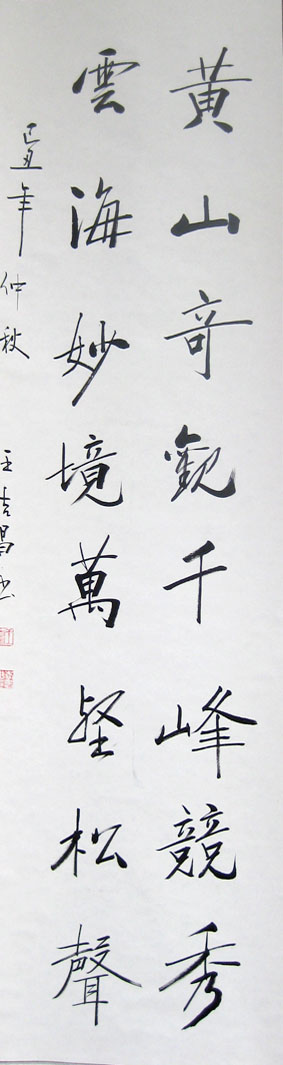 黄山奇觀千峰競秀
雲海妙境萬壑松聲
己丑年仲秋 王吉昌书